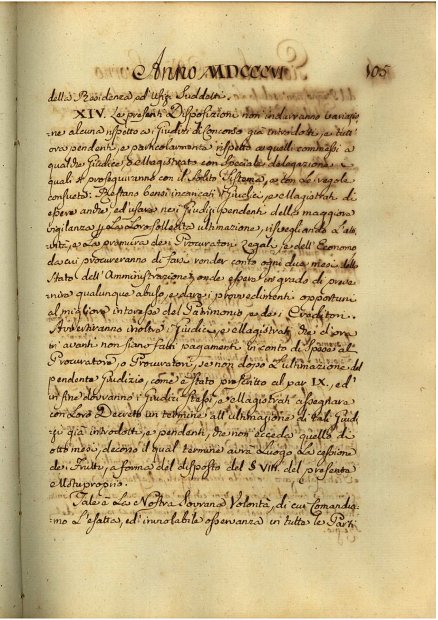 Anno MDCCCVI 105
della Residenza ed Ufizj Suddetti.
XIV. Le presenti Disposizioni non indurranno variazio-
ne alcuna rispetto a i Giudizi di Concorso già introdotti, e tutt'
ora pendenti, e particolarmente rispetto a quelli commessi a
qualche Giudice, o Magistrato con speciale delegazione, i
quali si proseguiranno con il solito Sistema, e con le regole
consuete: Restano bensì incaricati i Giudici, e Magistrati di
espera anche, ed usare nei Giudizi pendenti della maggiore
vigilanza per la Loro sollecita ultimazione, risvegliando l'atti-
vità, e la premura de i Procuratori Regali, e dell'Economo
da cui procureranno di farsi render conto ogni due mesi dello
Stato dell'Amministrazione, onde essere in grado di preve-
nire qualunque abuso, e dare i provvedimenti opportuni
al migliore interesse del Patrimonio, e de i Creditori.
Avvertiranno inoltre i Giudici, e Magistrati che d'ora
in avanti non sian fatti pagamenti in conto di spese al
Procuratore, o Procuratori, se non dopo l'ultimazione del
pendente Giudizio, come è stato prescritto al par. IX., ed
in fine dovranno i Giudici stessi, e Magistrati assegnare
con Loro Decreto un termine all'ultimazione di tali Giudi-
zj già introdotti, e pendenti, che non ecceda quello di
otto mesi, decorso il qual termine avrà Luogo la cessione
dei Frutti, a forma del disposto del § VIII. del presente
Motuproprio.
Tale è La Nostra Sovrana Volontà, di cui Comandia-
mo L'esatta, ed inviolabile osservanza in tutte le Parti